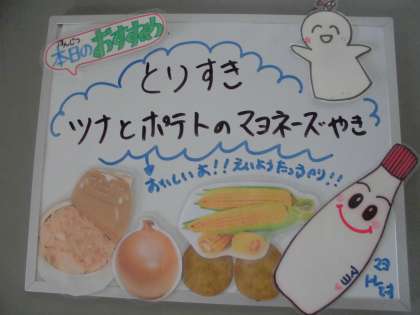 ほんじつ
本日のおすすめ
とりすき
ツナとポテトのマヨネーズやき
おいしいよ!!えいようたっぷり!!